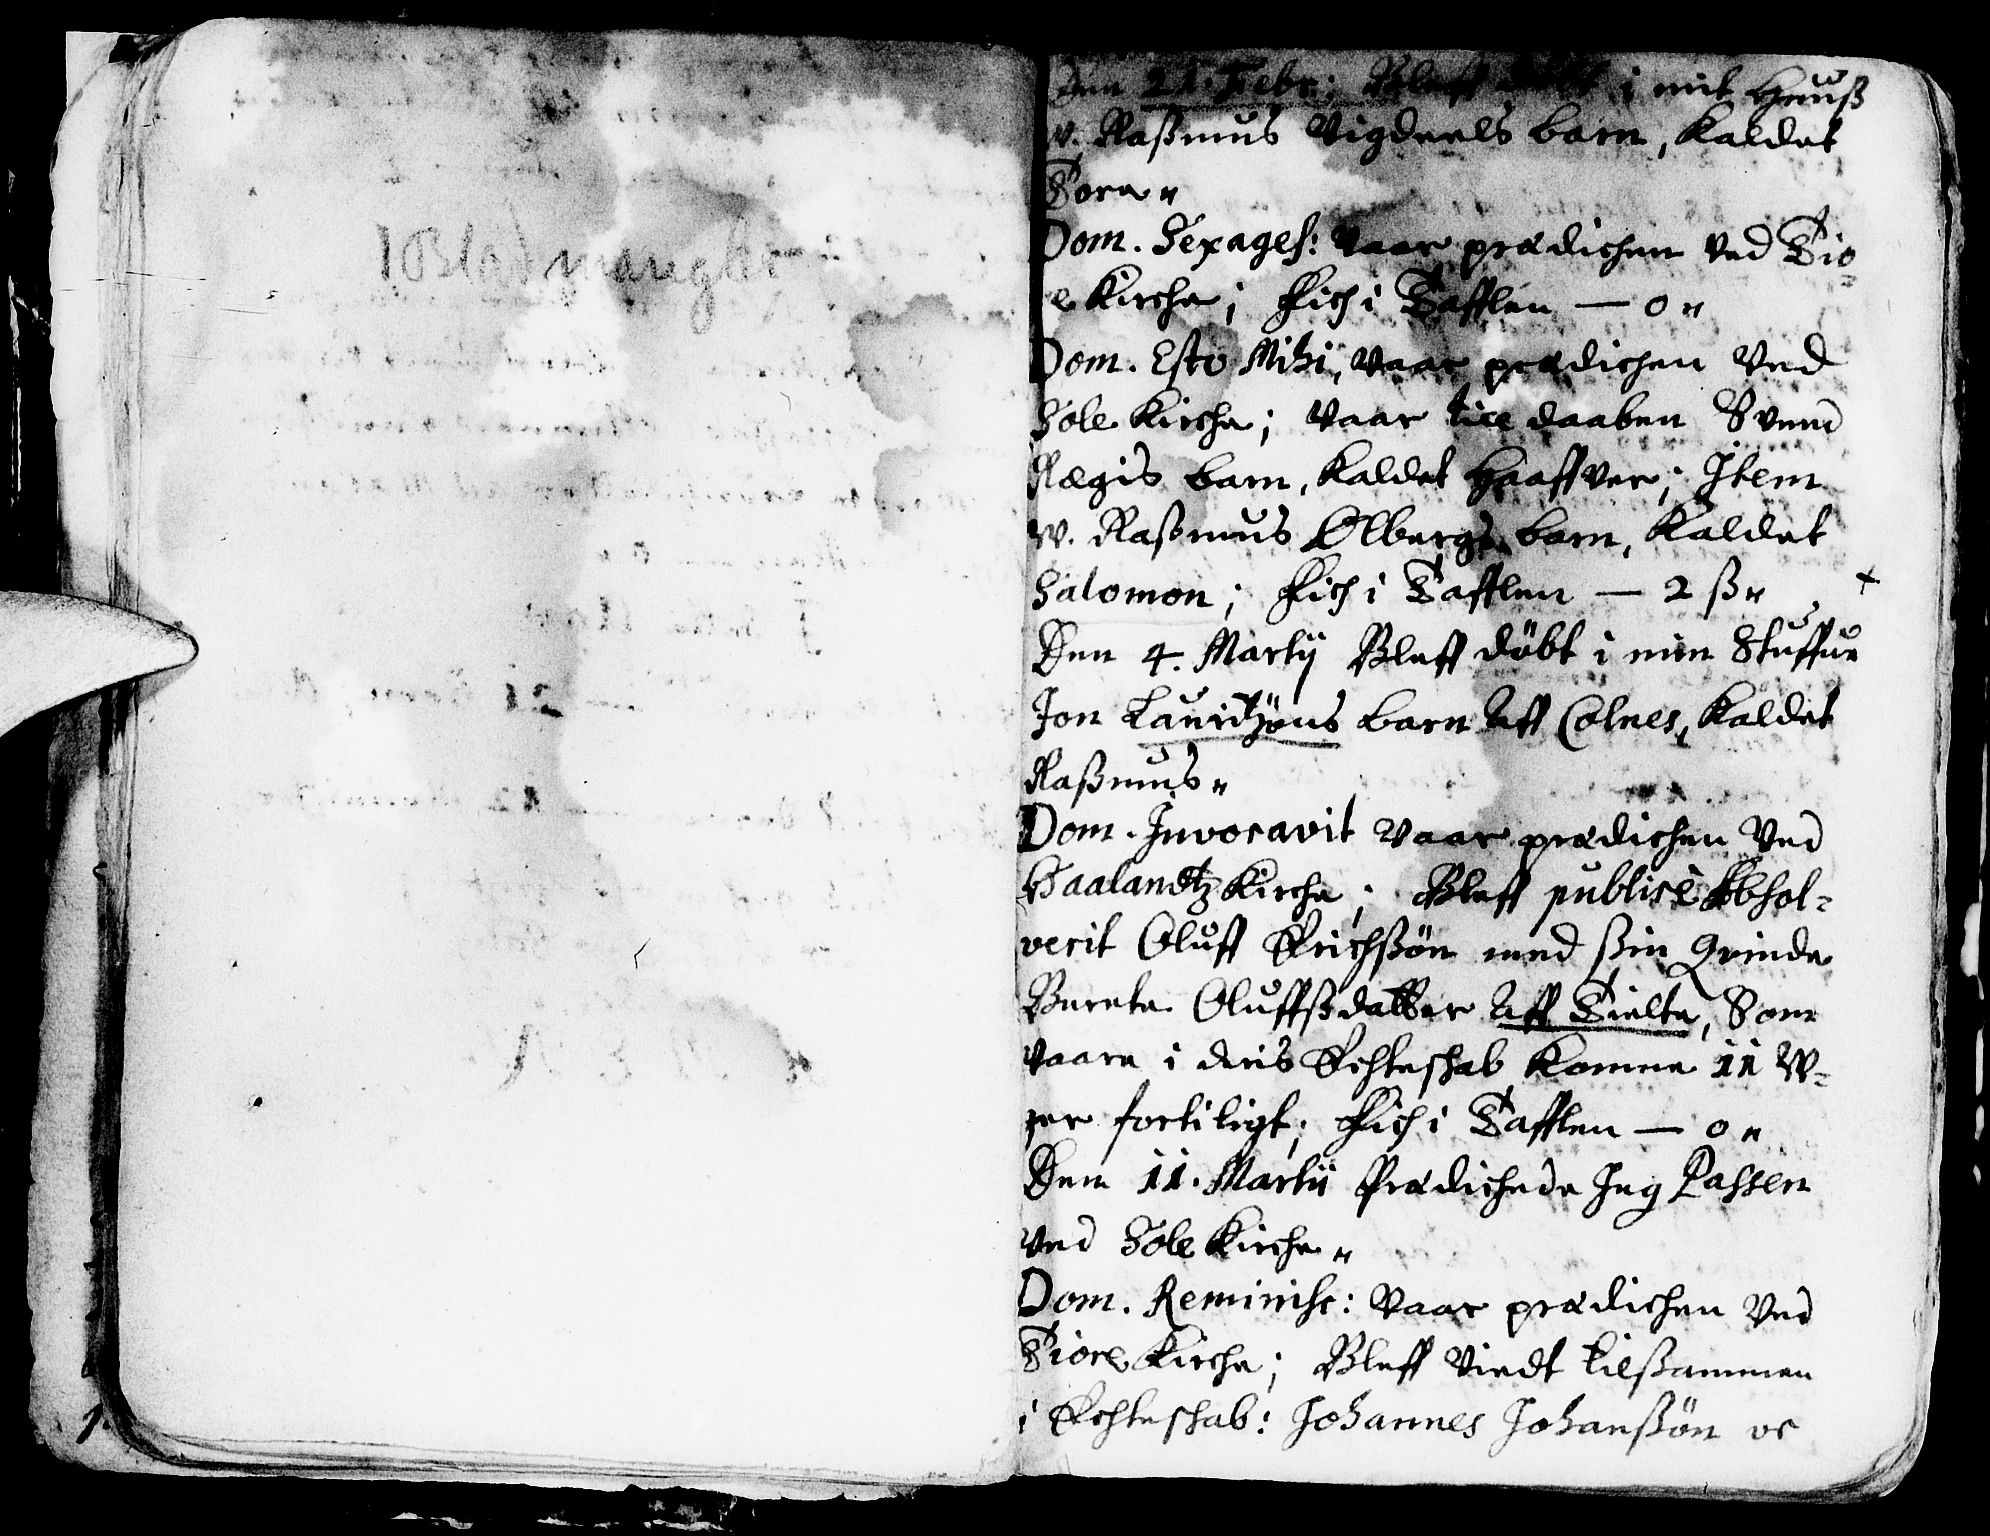 1 Blad mangler
Den 21. Febr: Bleff döbt i mit Huuß
v. Raßmus Vigdeels barn, kaldet
Tora
Dom. Sexages: Vaar prædichen Ved Tio-
e Kirche; Fich i Tafflen — 0
Dom. Esto Mihi, Vaar prædichen Ved
Sole Kirche; Vaar till daaben Svend
Rægis barn, kaldet Haaffver; Item
W. Raßmus Ølbergs barn, kaldet
Salomon; Fich i Tafflen — 2 ß
Den 4. Martij Bleff döbt i min Stuffue
Jon Lauridzøns barn Aff Colnes, kaldet
Raßmus
Dom. Invocavit Vaar prædichen Ved
Haalandtz Kirche; Bleff publicè Abhol-
verit Oluff Erichßön med ßin Qvinde
Berete Oluffßdatter Aff Tielte, Som
Vaare i deris Echteschab komne 11 W-
ger fortiligt; Fich i Tafflen — 0
Den 11. Martii Prædichede Jeg Passen
Ved Sole Kirche
Dom. Reminisc: Vaar prædichen Ved
Tiore Kirche; Bleff Viedt tilßammen
i Echteschab: Johannes Johanßön oc